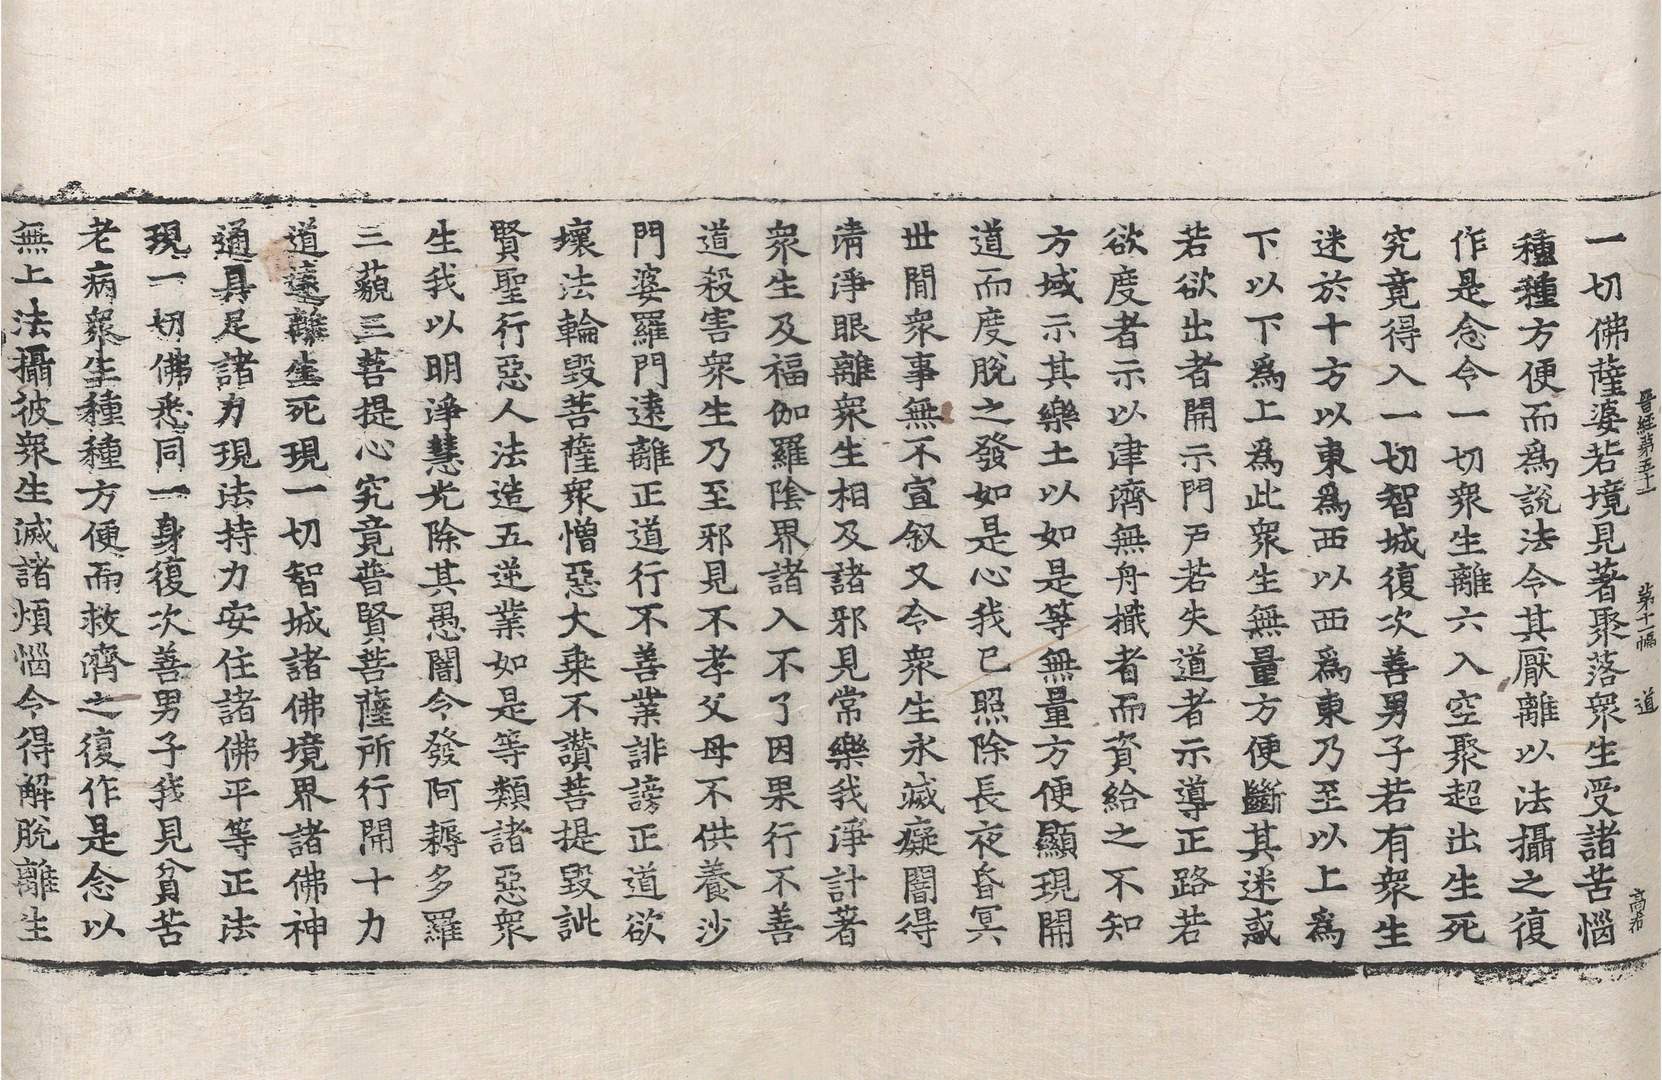 晉經第五十一 第十幅 道 高希
一切佛薩婆若境見著聚落衆生受諸苦惱
種種方便而爲說法令其厭離以法攝之復
作是念令一切衆生離六入空聚超出生死
究竟得入一切智城復次善男子若有衆生
迷於十方以東爲西以西爲東乃至以上爲
下以下爲上爲此衆生無量方便斷其迷惑
若欲出者開示門戸若失道者示導正路若
欲度者示以津濟無舟檝者而資給之不知
方域示其樂土以如是等無量方便顯現開
道而度脫之發如是心我已照除長夜昏冥
世間衆事無不宣叙又令衆生永滅癡闇得
清淨眼離衆生相及諸邪見常樂我淨計著
衆生及福伽羅陰界諸入不了因果行不善
道殺害衆生乃至邪見不孝父母不供養沙
門婆羅門遠離正道行不善業誹謗正道欲
壞法輪毀菩薩衆憎惡大乗不讚菩提毀訿
賢聖行惡人法造五逆業如是等類諸惡衆
生我以明淨慧光除其愚闇令發阿耨多羅
三藐三菩提心究竟普賢菩薩所行開十力
道遠離生死現一切智城諸佛境界諸佛神
通具足諸力現法持力安住諸佛平等正法
現一切佛悉同一身復次善男子我見貧苦
老病衆生種種方便而救濟之復作是念以
無上法攝彼衆生滅諸煩惱令得解脫離生